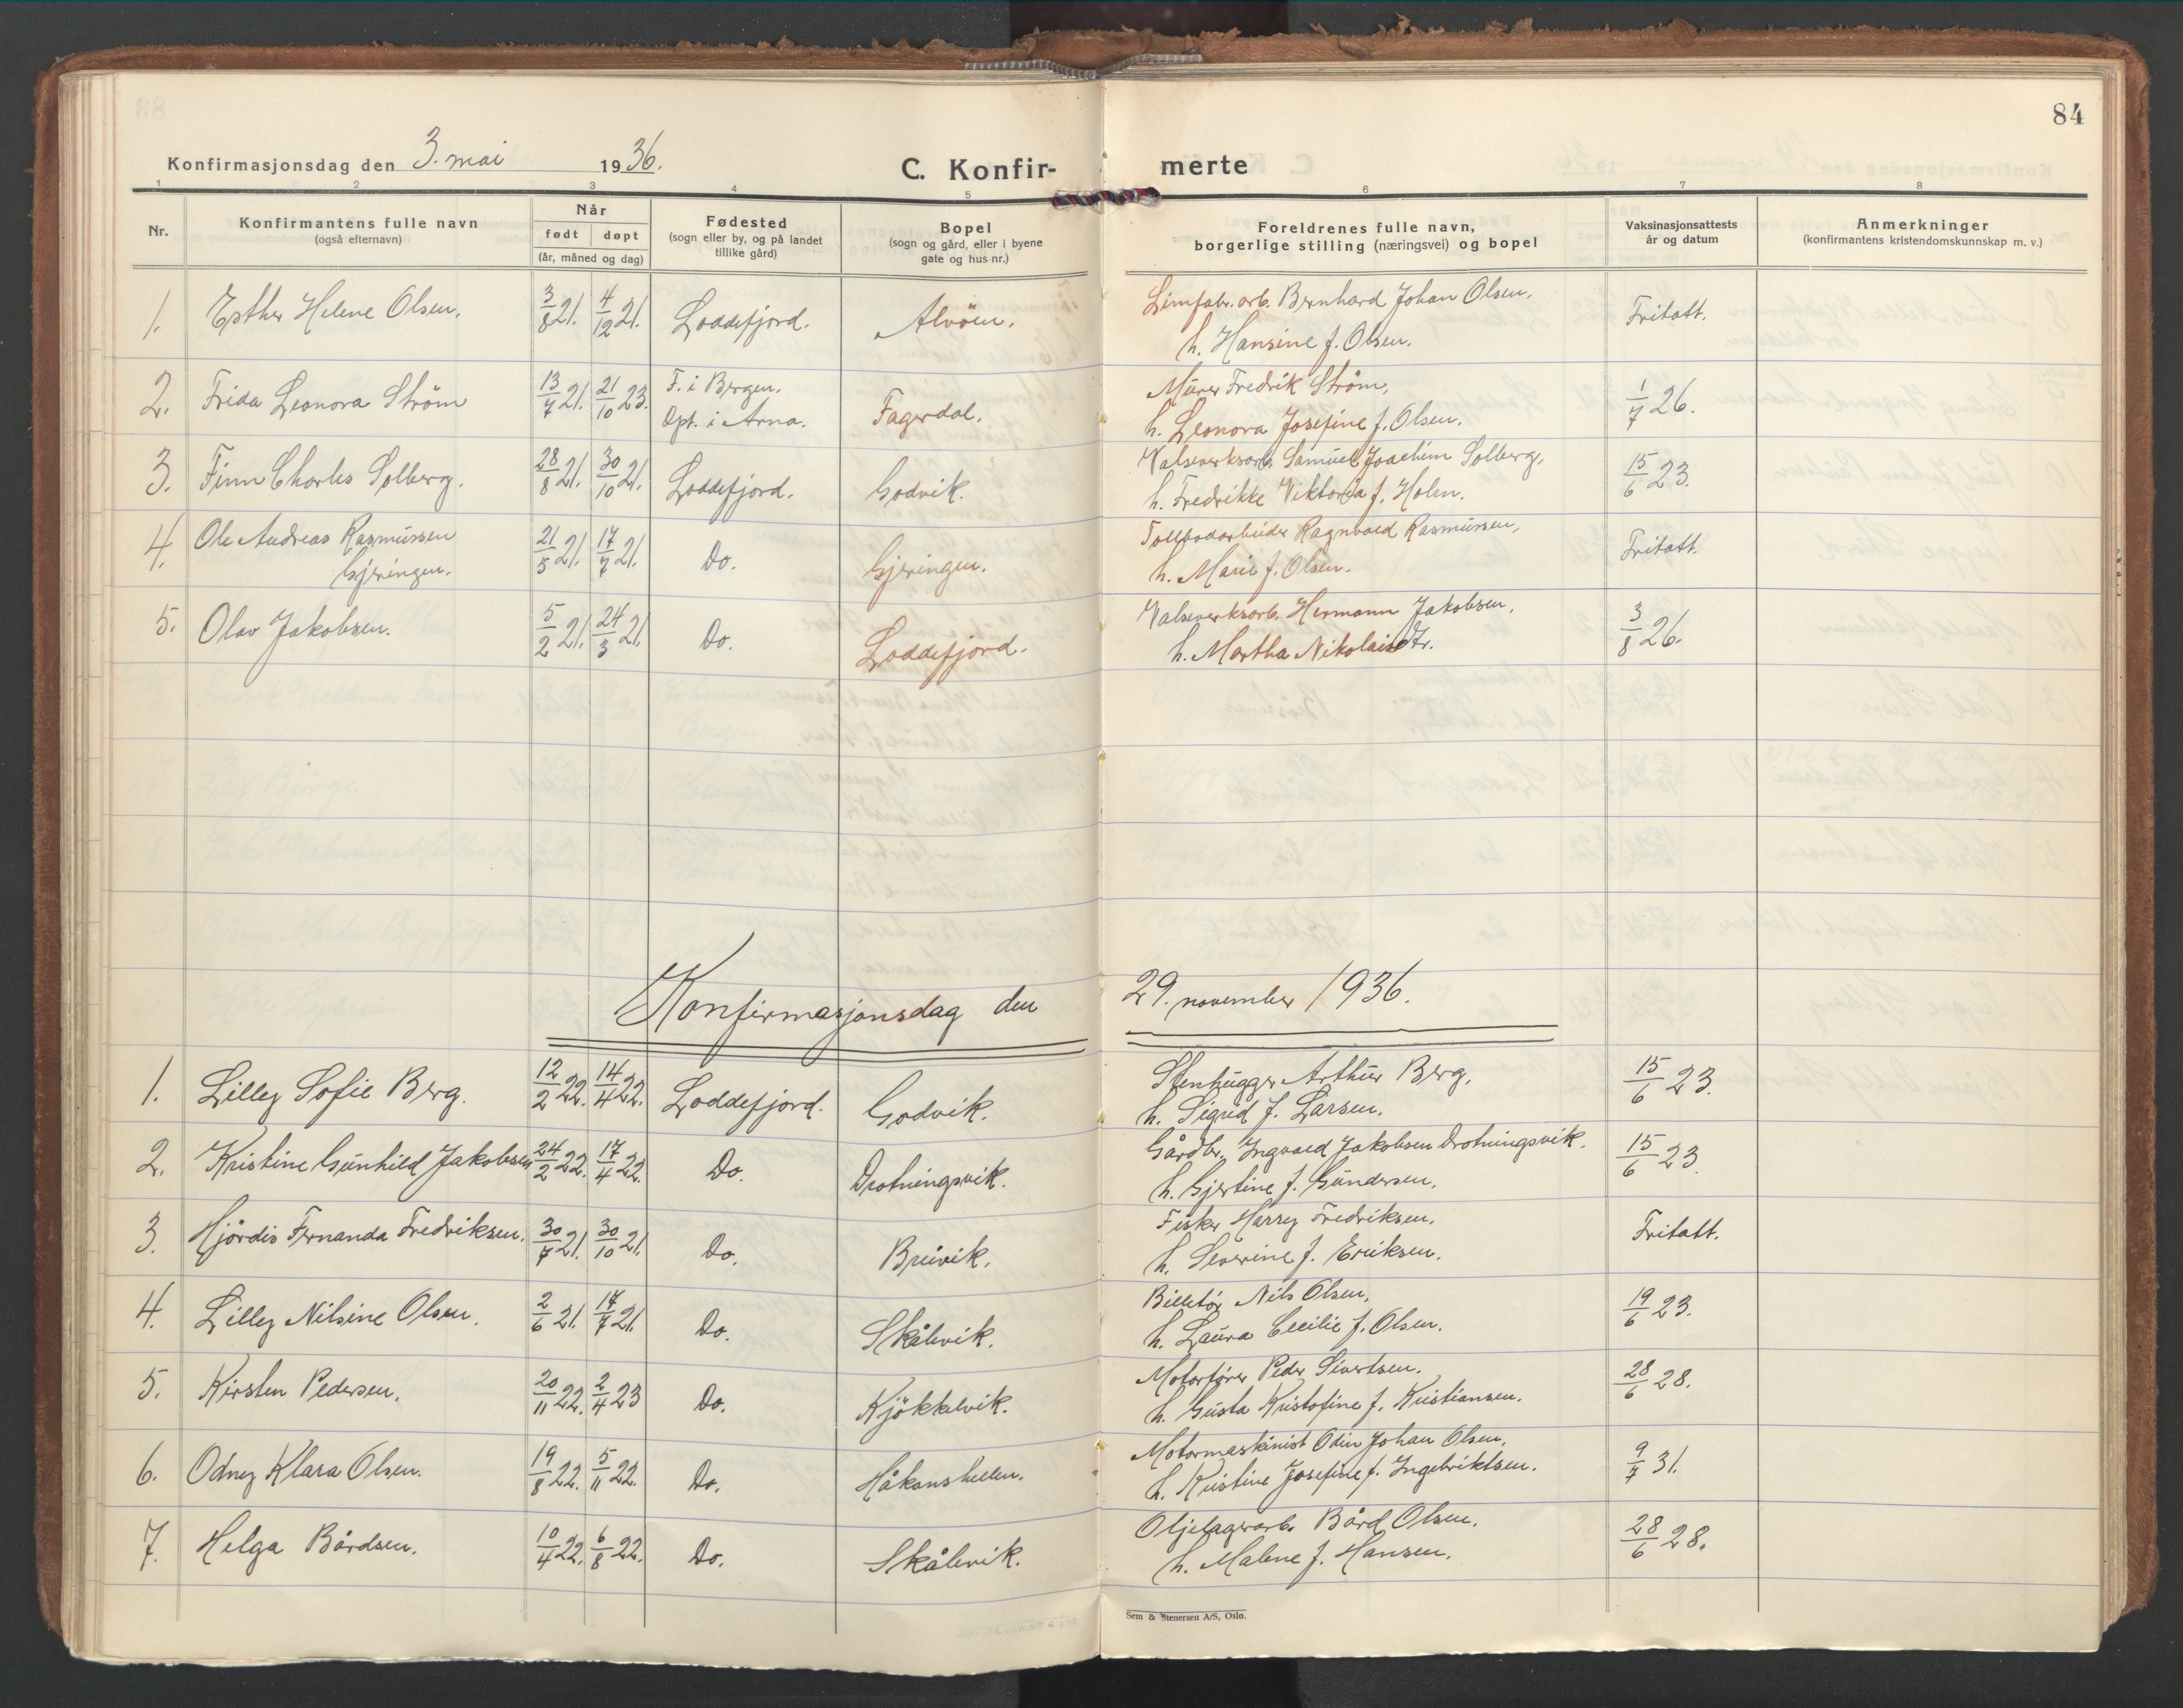 84
Konfirmasjonsdag den 3. mai 1936.
C. Konfirmerte
1 2 3 4 5 6 7 8
Nr.
Konfirmantens fulle navn
(også efternavn)
Når
født døpt
(år, måned og dag)
Fødested
(sogn eller by, og på landet
tillike gård)
Bopel
(sogn og gård, eller i byene
gate og hus-nr.)
Foreldrenes fulle navn,
borgerlige stilling (næringsvei) og bopel
Vaksinasjonsattests
år og datum
Anmerkninger
(konfirmantens kristendomskunnskap m. v.)
1. Esther Helene Olsen. 3/8 21. 4/12 21. Loddefjord. Alvöen. Limfabr. arb. Bernhard Johan Olsen, Fritatt.
h. Hansine f. Olsen.
2. Frida Leonora Ström 13/7 21. 21/10 23. F. i Bergen. Fagerdal. Murer Fredrik Ström, 1/7 26.
Dpt. i Arna. h. Leonora Josefine f. Olsen.
3. Finn Charles Solberg. 28/8 21. 30/10 21. Loddefjord. Godvik. Valseverksarb. Samuel Joachim Solberg, 15/6 23.
h. Fredrikke Viktoria f. Holm.
4. Ole Andreas Rasmussen 21/5 21. 17/7 21. Do. Gjeringen. Tollbodarbeider Ragnvald Rasmussen, Fritatt.
Gjeringen. h. Marie f. Olsen.
5. Olav Jakobsen. 5/2 21. 24/3 21. Do. Loddefjord. Valseverksarb. Hermann Jakobsen, 3/8 26.
h. Martha Nikolaisdtr.
Konfirmasjonsdag den 29. november 1936.
1. Lilley Sofie Berg. 12/2 22. 14/4 22. Loddefjord. Godvik. Stenhugger Arthur Berg, 15/6 23.
h. Sigrid f. Larsen.
2. Kristine Gunhild Jakobsen 24/2 22. 17/4 22. Do. Drotningsvik. Gårdbr. Ingvald Jakobsen Drotningsvik. 15/6 23.
h. Gjertine f. Gundersen.
3. Hjördis Fernanda Fredriksen. 30/7 21. 30/10 21. Do. Breivik. Fisker Harry Fredriksen. Fritatt.
h. Severine f. Eriksen.
4. Lilley Nilsine Olsen. 2/6 21. 17/7 21. Do. Skålevik. Billetör Nils Olsen, 19/6 23.
h. Laura Cecilie f. Olsen.
5. Kirsten Pedersen. 20/11 22. 2/4 23 Do. Kjökkelvik. Motorförer Peder Sivertsen. 28/6 28.
h. Gusta Kristofine f. Kristiansen.
6. Odney Klara Olsen. 19/8 22. 5/11 22. Do. Håkonshellen. Motormaskinist Odin Johan Olsen, 9/7 31.
h. Kristine Josefine f. Ingebriktsen.
7. Helga Bårdsen. 10/4 22. 6/8 22. Do. Skålevik. Oljelagerarb. Bård Olsen. 28/6 28.
h. Malene f. Hansen.
Sem & Stenersen A/S, Oslo.